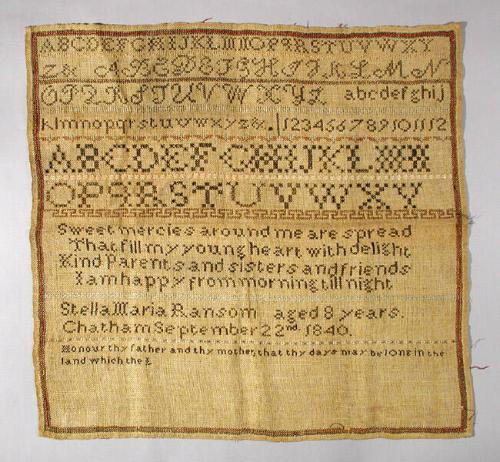 ABCDEFGHIJKLMNOPQRSTUVWXY
Z& ABCDEFGHIJKLMN
OPQRSTUVWXYZ abcdefghij
klmnopqrstuvwxyz&. 123456789101112
ABCDEFGHIJKLMN
OPQRSTUVWXY
Sweet mercies around me are spread
That fill my young heart with delight
Kind Parents and sisters and friends
I am happy from morning till night
Stella Maria Ransom aged 8 years.
Chatham September 22nd. 1840.
Honour thy father and thy mother, that thy days may be long in the
land which the L